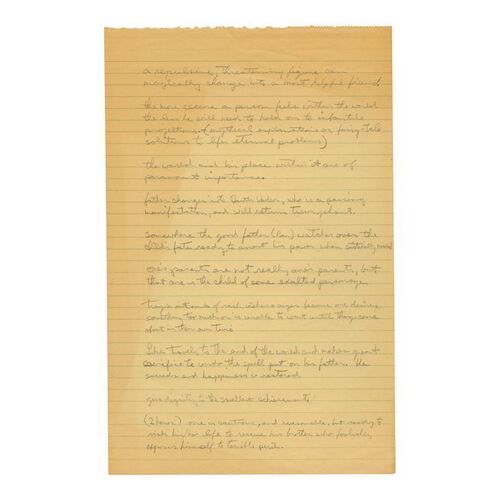 a repulsive, threatening figure can
magically change into a most helpful friend.
the more secure a person feels within the world
the less he will need to hold on to infantile
projections. (mythical explanations or fairy tale
solutions to life's eternal problems)
the world and his place within it are of
paramount importance.
father changes into Darth Vader, who is a passing
manifestation, and will return triumphant.
Somewhere the good father (Ben) watches over the
child's fate ready to assert his power when critically needed
One's parents are not really one's parents, but
that one is the child of some exalted personage.
Tragic outcome of rash wishes anger because one desires
something too much or is unable to wait until things come
about in their own time
Luke travels to the end of the world and makes great
sacrifice to undo the spell put on his father. He
succeeds and happiness is restored
give dignity to the smallest achievement.
(2 heros) one is cautious, and reasonable, but ready to
risk his/her life to rescue his brother who foolishly
exposes himself to terrible perils.